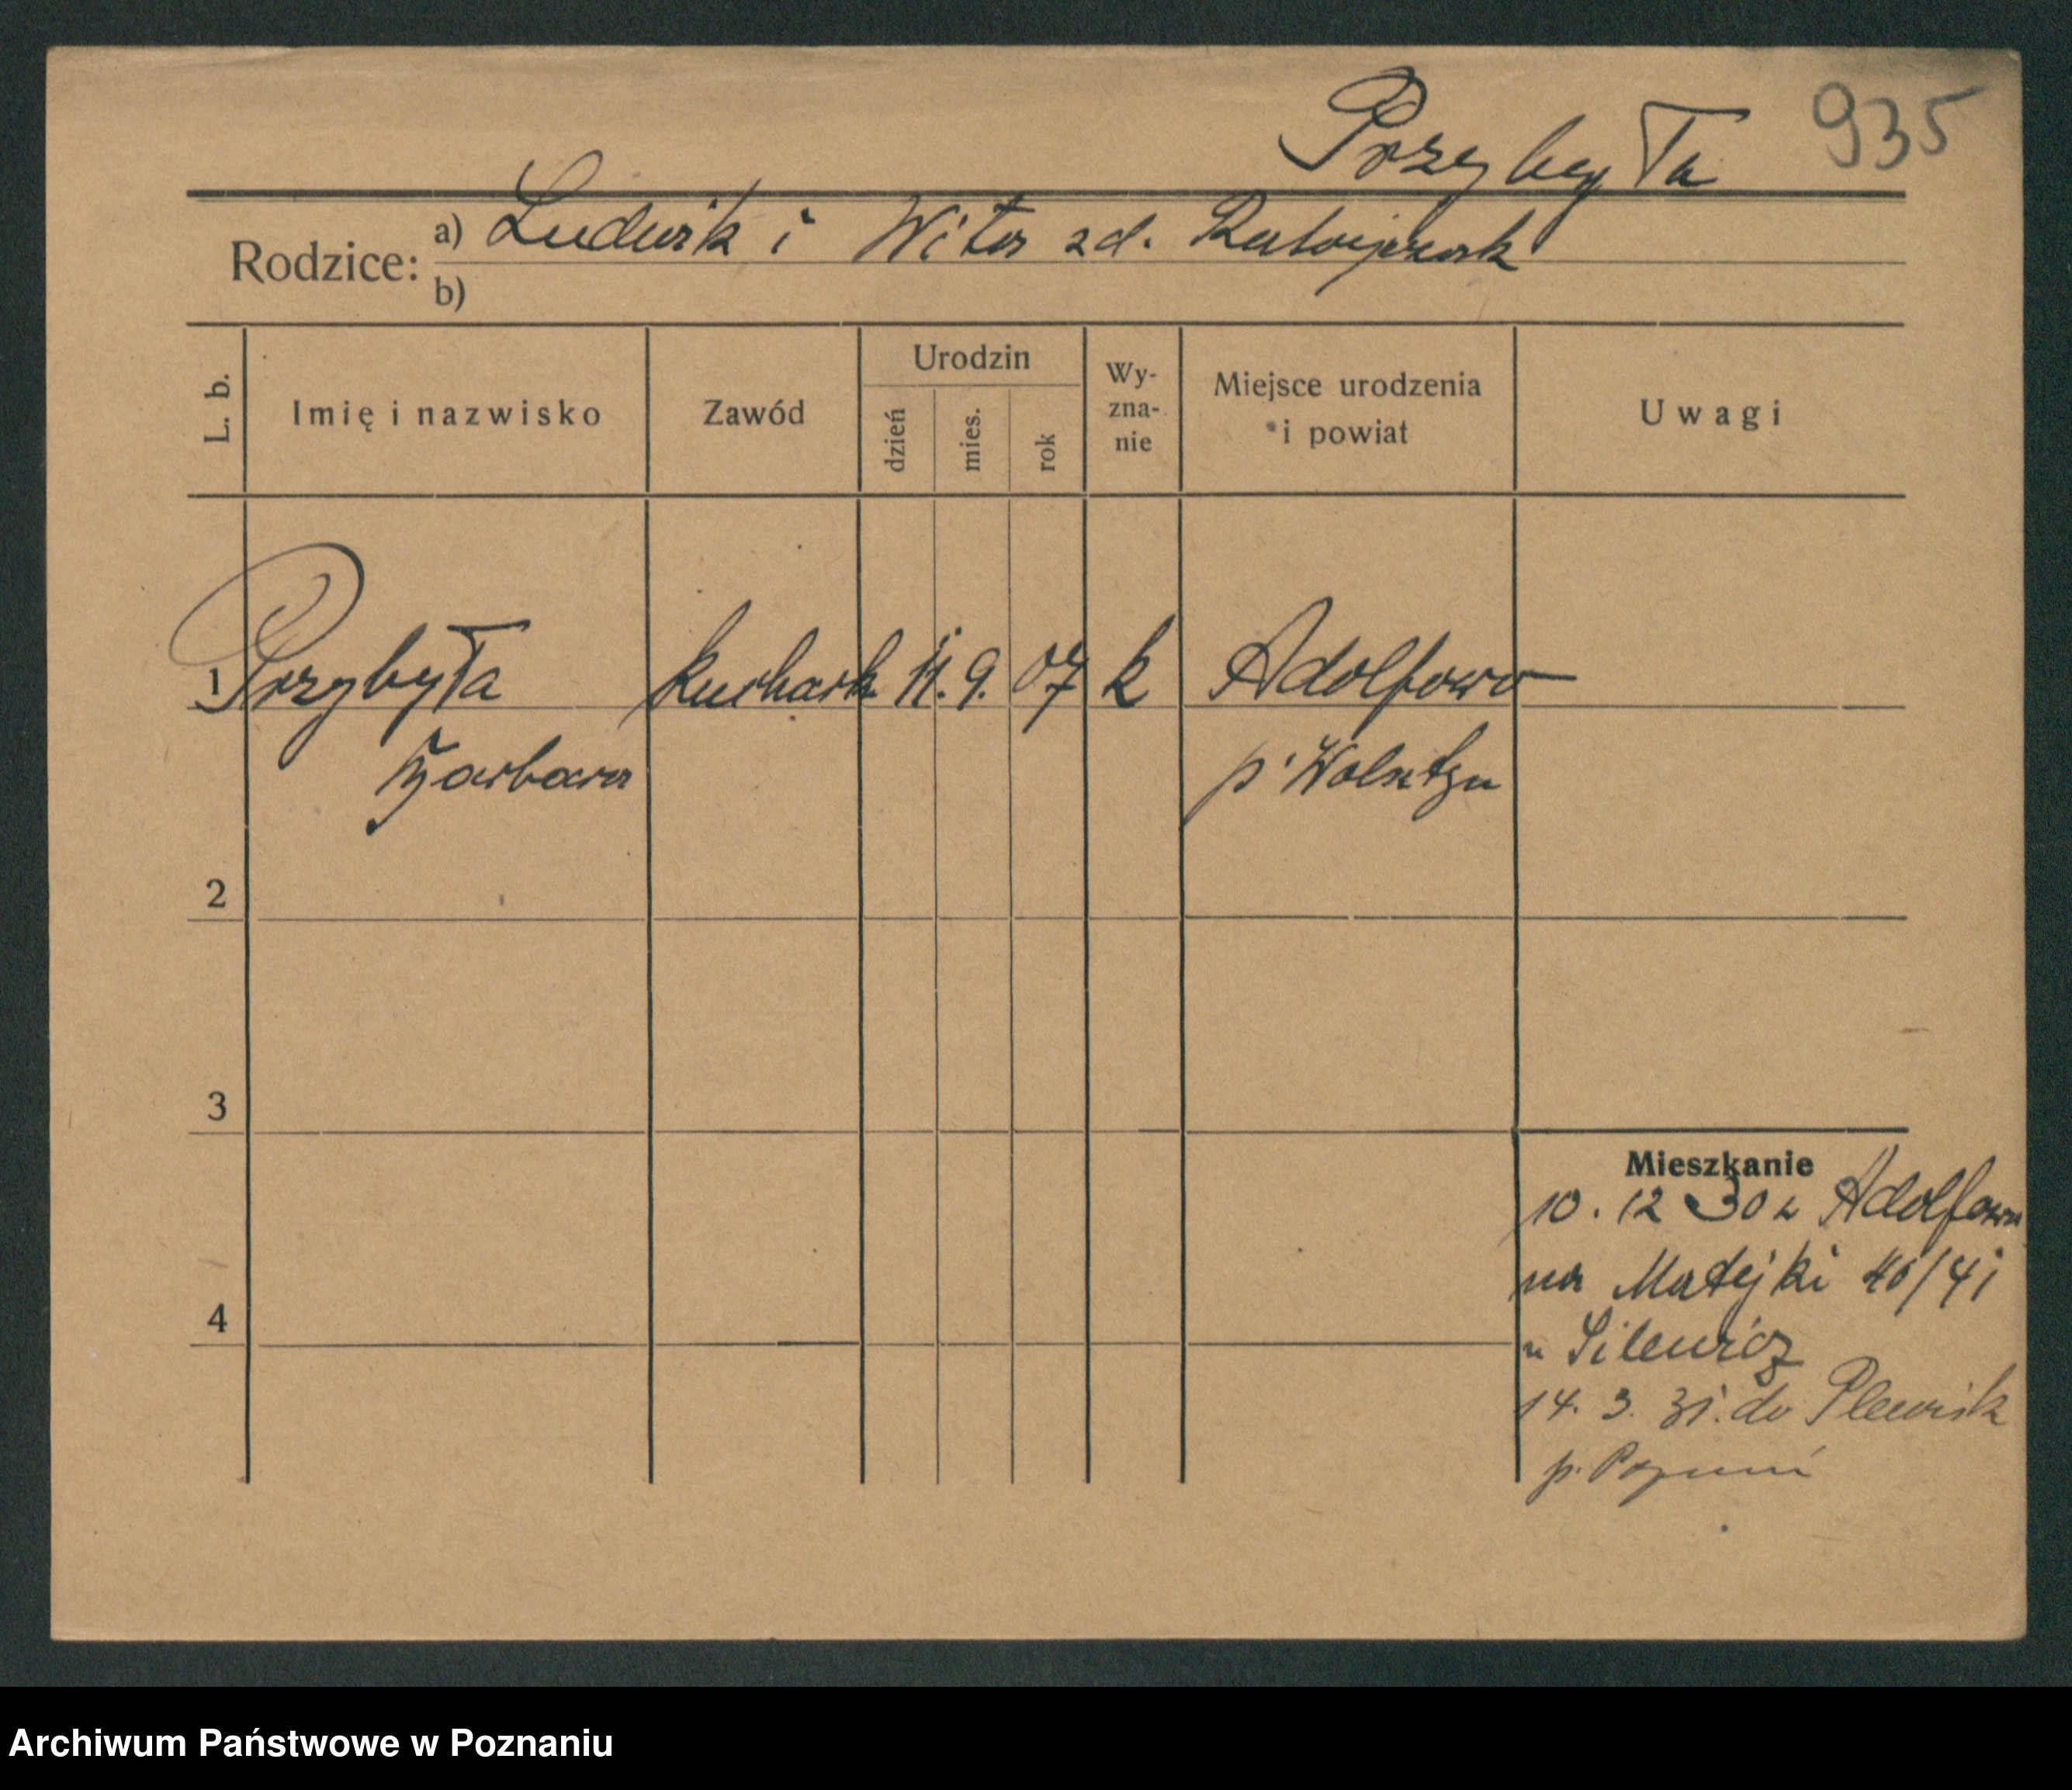 Przybyła 935
Rodzice: a) Ludwik i Wita zd. Ratajczak
b)
L. b. Imię i nazwisko Zawód Urodzin dzień mies. rok Wy-zna-nie Miejsce urodzenia i powiat Uwagi
1 Przybyła kuchark 11. 9. 07 k Adolfowo
Barbara p. Wolsztyn
2
3
4
Mieszkanie
10. 12 30 z Adolfowa
na Matejki 40/41
u Silewicz
14. 3. 31. do Plewisk
p. Poznań
Archiwum Państwowe w Poznaniu